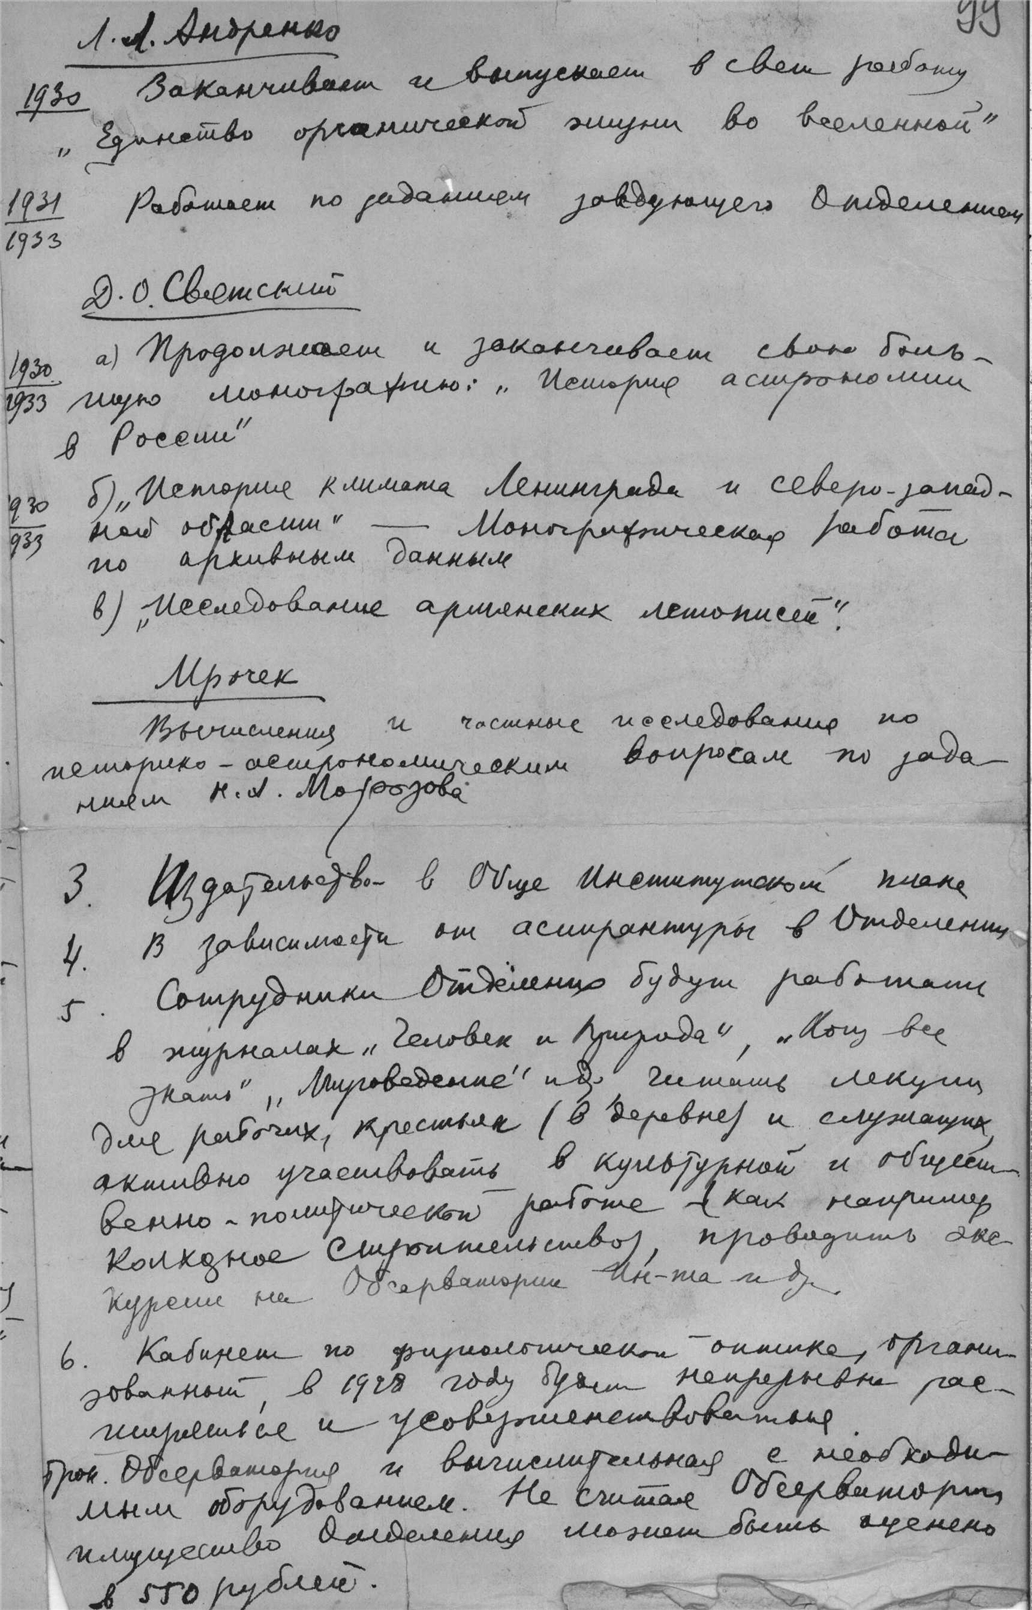 99
Л. Л. Андренко
1930 Заканчивает и выпускает в свет работу
„Единство органической жизни во вселенной"
1931
1933
Работает по заданием заведующего Отделением
Д. О. Святский
1930
1933
а) Продолжает и заканчивает свою боль-
шую монографию: „История астрономии
в России"
930
933
б) „История климата Ленинграда и северо-запад-
ной области" — Монографическая работа
по архивным данным
в) „Исследование армянских летописей".
Мрочек
Вычисления и частные исследования по
историко-астрономическим вопросам по зада-
ниям Н. А. Морозова
3. Издательство в Обще Институтском плане
4. В зависимости от аспирантуры в Отделении
5. Сотрудники Отделения будут работать
в журналах „Человек и Природа", „Хочу все
знать", „Мироведение" и др. читать лекции
для рабочих, крестьян (в деревне) и служащих,
активно участвовать в культурной и общест-
венно-политической работе (как например
колхозное строительство), проводить экс-
курсии на Обсерватории Ин-та и др.
6. Кабинет по физиологической оптике, органи-
зованный в 1928 году будет непрерывно рас-
ширяться и усовершенствоваться
Обсерватория и вычислительная с необходи-
мым оборудованием. Не считая Обсерватории
имущество Отделения может быть оценено
в 550 рублей.